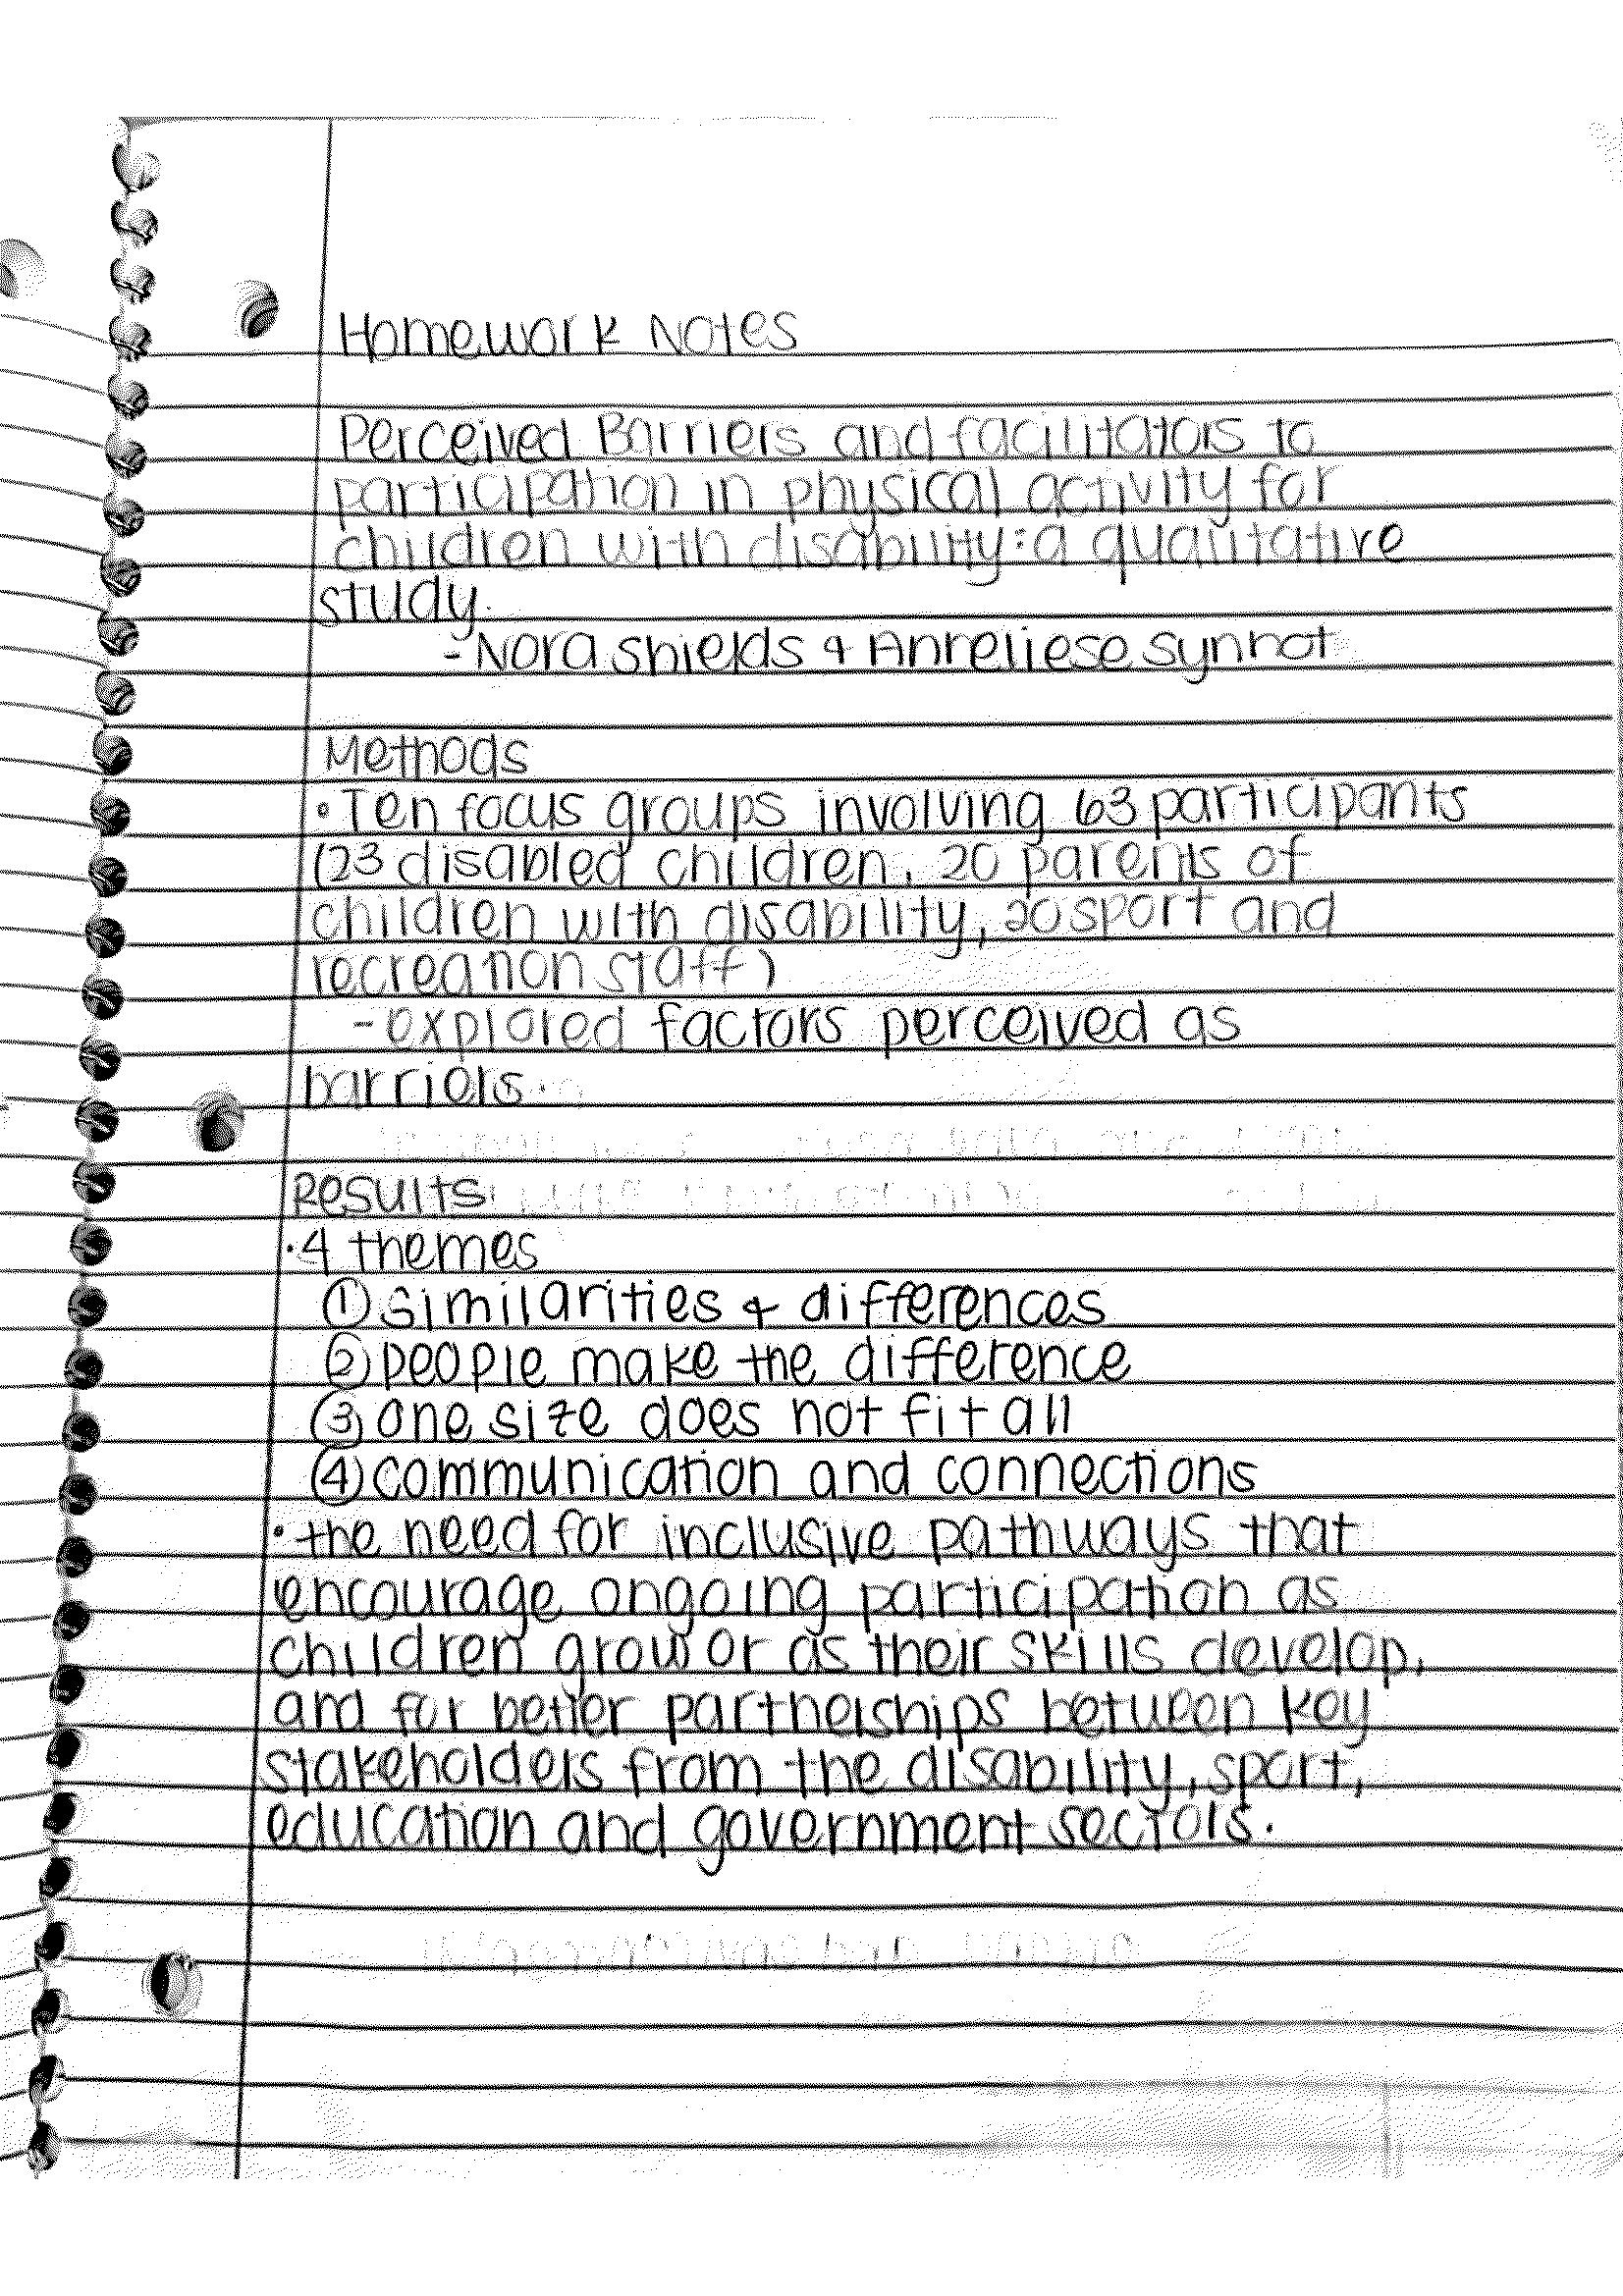 Homework Notes
Perceived Barriers and facilitators to
participation in physical activity for
children with disability: a qualitative
study.
- Nora shields & Anneliese synnot
Methods
• Ten focus groups involving 63 participants
(23 disabled children, 20 parents of
children with disability, 20 sport and
recreation staff)
- explored factors perceived as
barriers.
Results
• 4 themes
① similarities & differences
② people make the difference
③ one size does not fit all
④ communication and connections
• the need for inclusive pathways that
encourage ongoing participation as
children grow or as their skills develop,
and for better partnerships between key
stakeholders from the disability, sport,
education and government sectors.